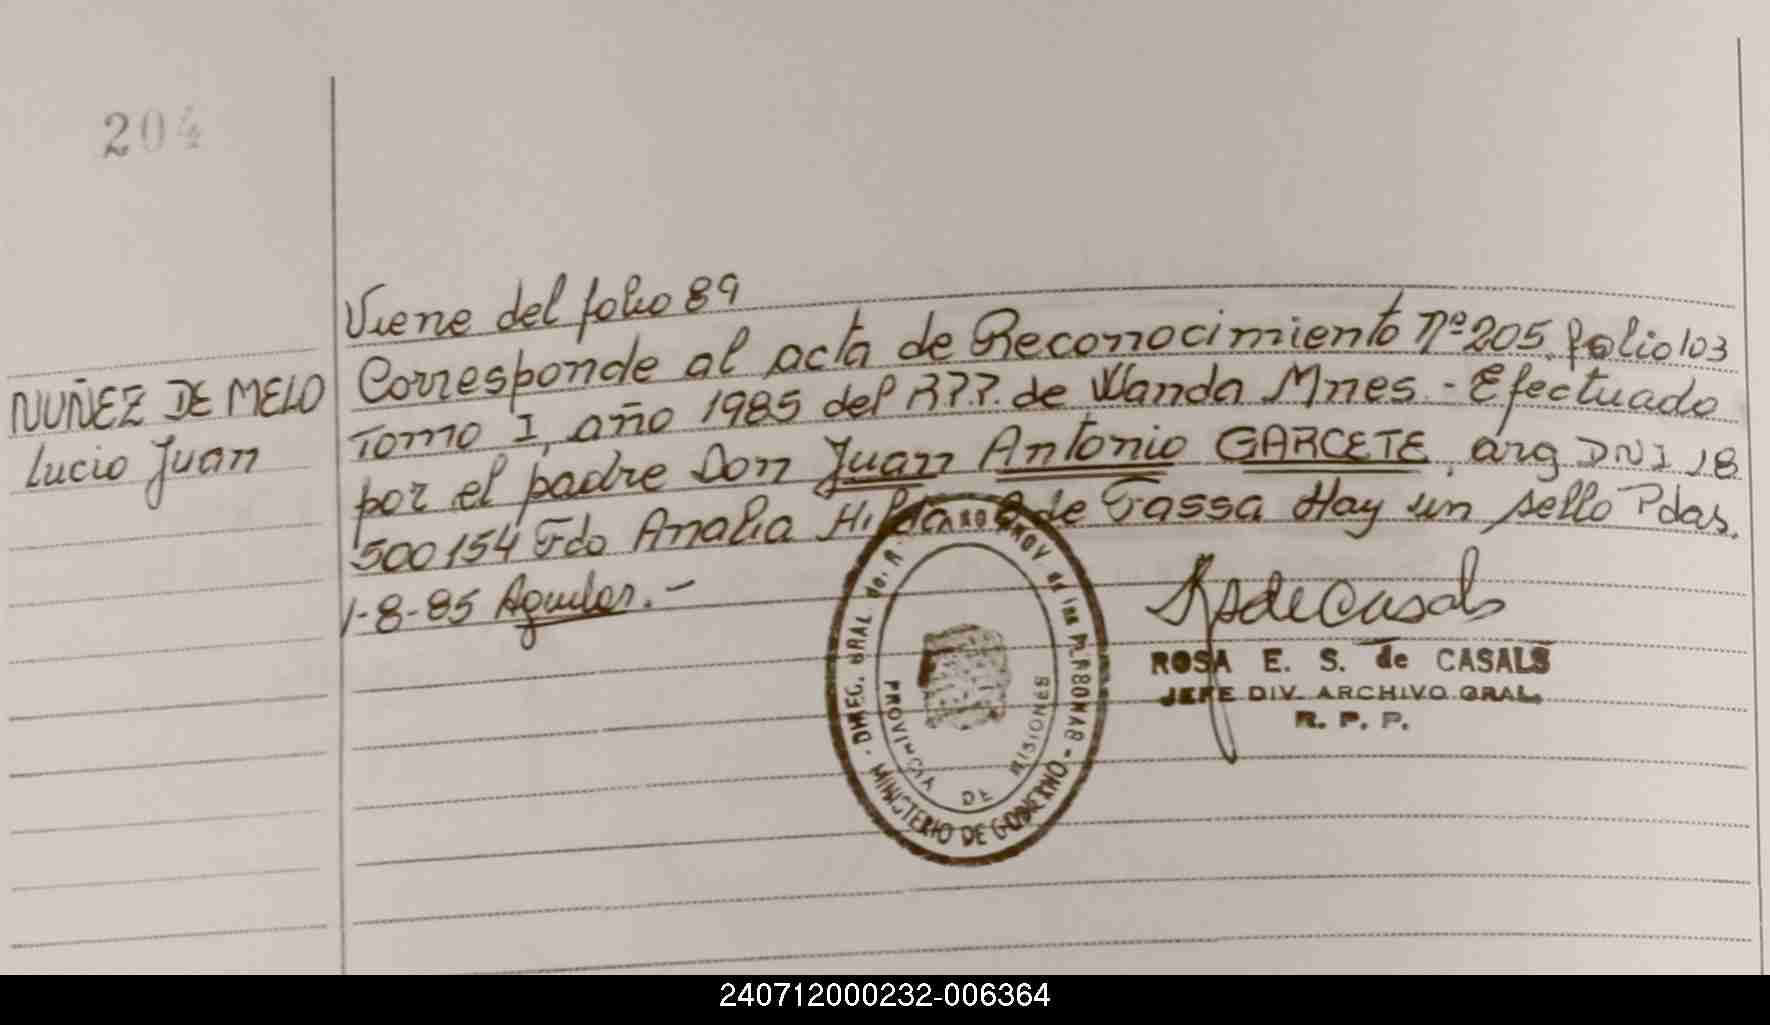 204
NUÑEZ DE MELO
Lucio Juan
Viene del folio 89
Corresponde al acta de Reconocimiento Nº 205, folio 103
Tomo I, año 1985 del R.P.P. de Wanda Mnes. - Efectuado
por el padre Don Juan Antonio GARCETE, arg DNI 18
500154 Fdo Analia Hilda de Fassa Hay un sello Pdas.
1-8-85 Aguilar. -
ROSA E. S. de CASALS
JEFE DIV. ARCHIVO GRAL.
R. P. P.
DIREC. GRAL. PROV. de las PERSONAS - MINISTERIO DE GOBIERNO -
PROVINCIA DE MISIONES
240712000232-006364